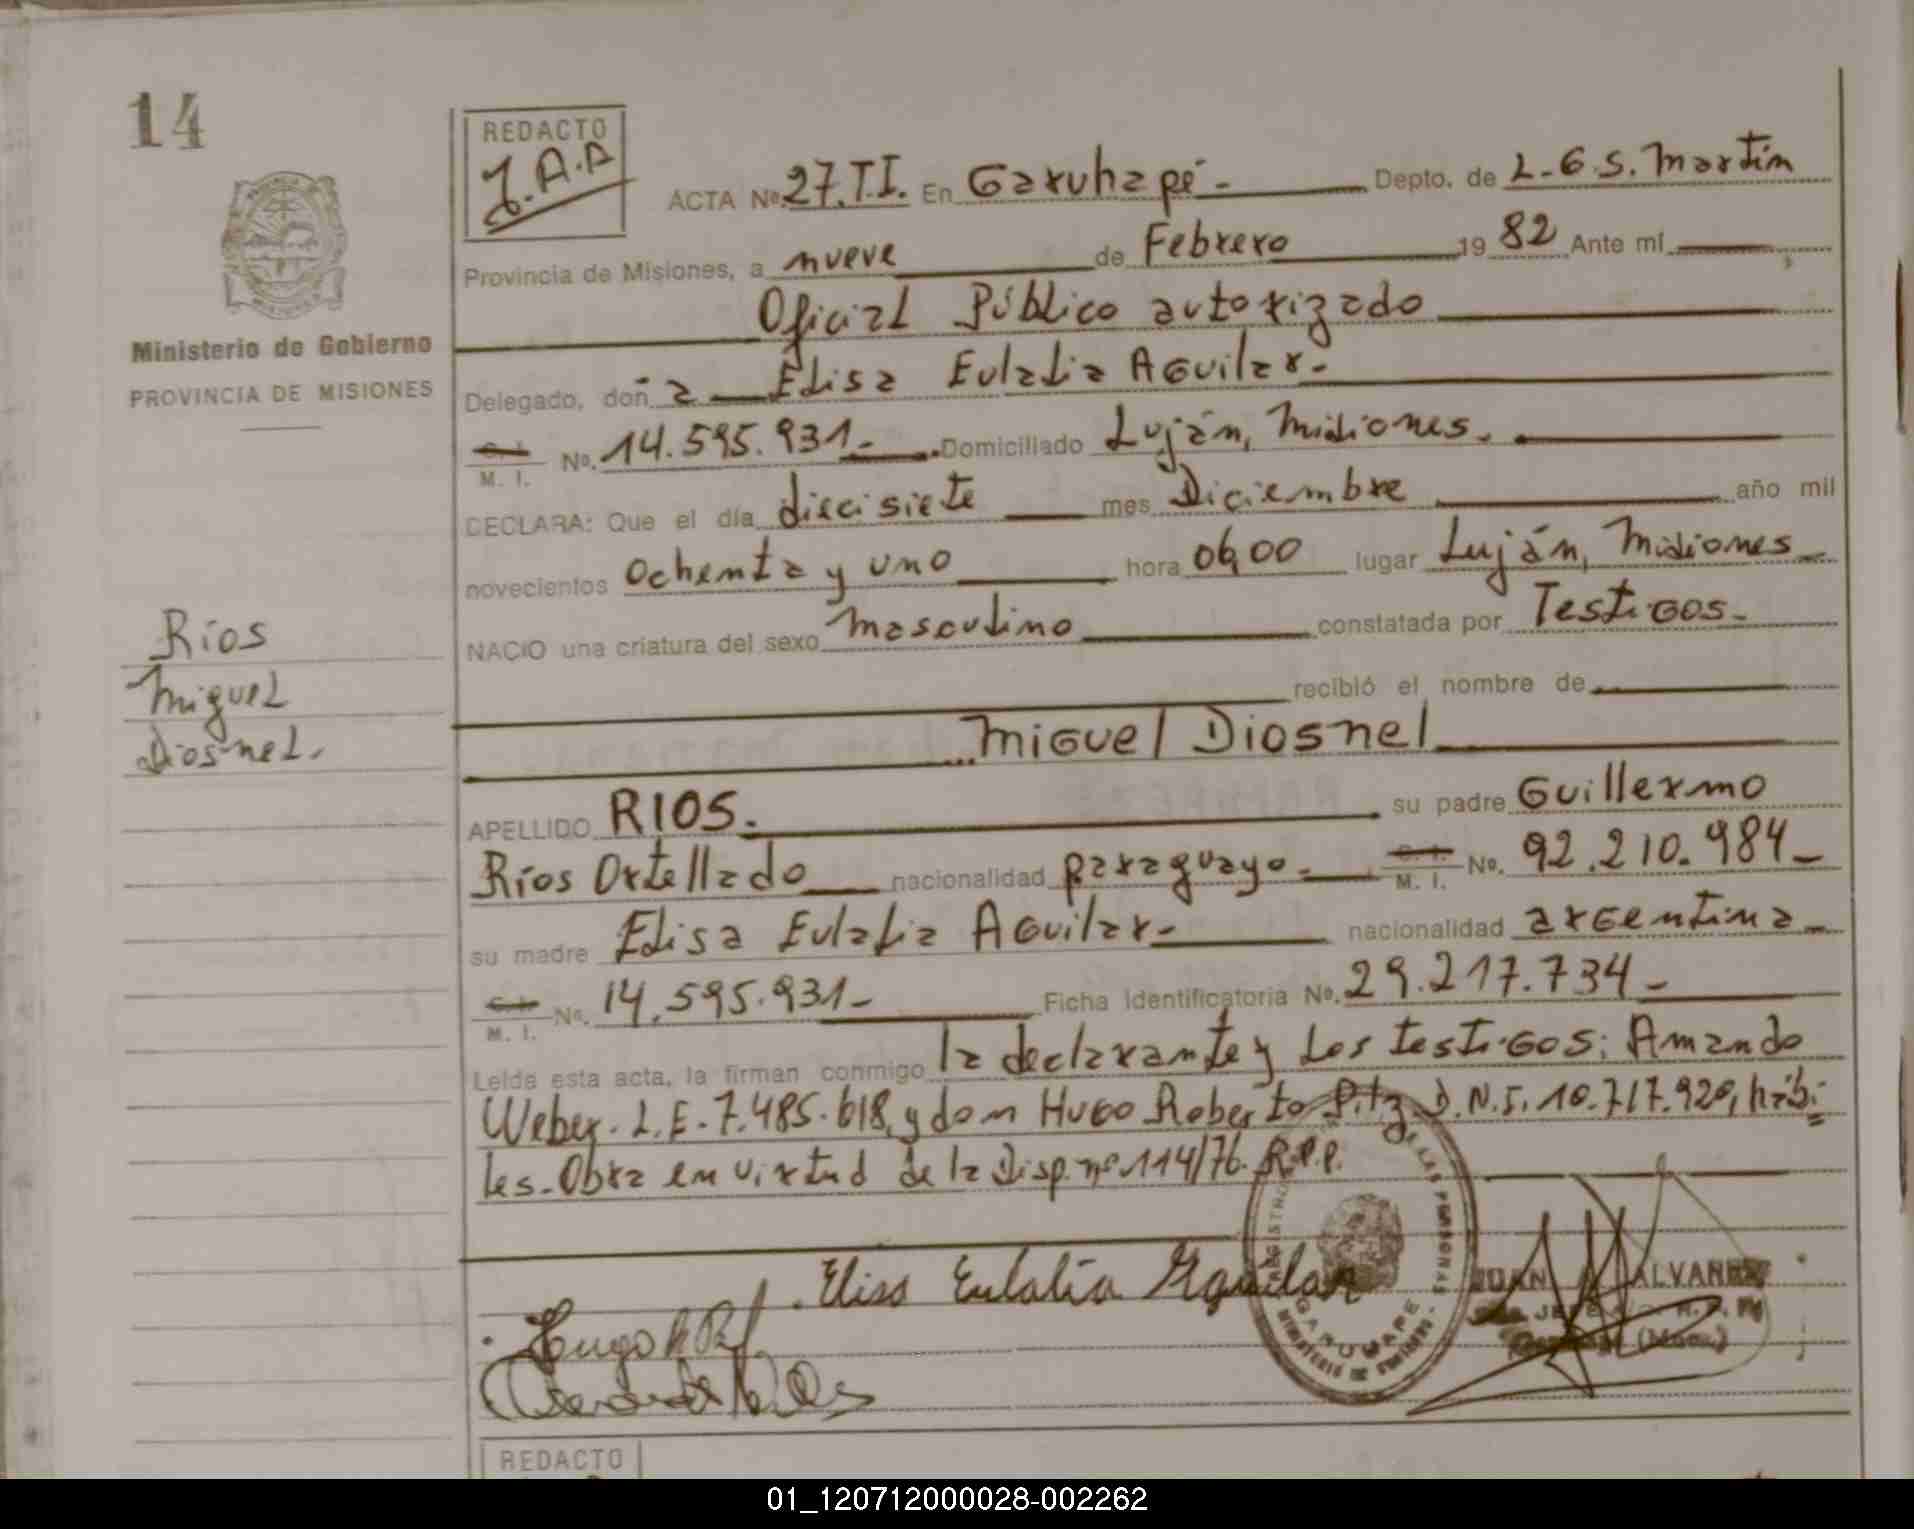 14
REDACTO
J.A.A
ACTA Nº 27.T.I. En Garuhapé- Depto. de L.G.S. Martín
Provincia de Misiones, a nueve de Febrero 19 82 Ante mí
Oficial Público autorizado
Ministerio de Gobierno
PROVINCIA DE MISIONES
Delegado, doñ a Elisa Eulalia Aguilar-
C. I. M. I. No. 14.595.931- Domiciliado Luján, Misiones.
DECLARA: Que el día diecisiete mes Diciembre año mil
novecientos Ochenta y uno hora 06,00 lugar Luján, Misiones
NACIO una criatura del sexo masculino constatada por Testigos-
recibió el nombre de
Miguel Diosnel
Ríos
Miguel
Diosnel.
APELLIDO RIOS. su padre Guillermo
Ríos Ortellado nacionalidad paraguayo- C. I. M. I. No. 92.210.984-
su madre Elisa Eulalia Aguilar- nacionalidad argentina
C. I. M. I. No. 14.595.931- Ficha Identificatoria No. 29.217.734-
Leída esta acta, la firman conmigo la declarante y los testigos: Amando
Weber. L.E. 7.485.618, y don Hugo Roberto Pitz D.N.I. 10.717.920, hábi=
les. Obra en virtud de la Disp. nº 114/76. R.P.P.
Elisa Eulalia Aguilar
JUAN ALVAREZ
JEFE
GARUHAPE
MINISTERIO DE GOBIERNO
REGISTRO DE LAS PERSONAS
Hugo R
REDACTO
01_120712000028-002262